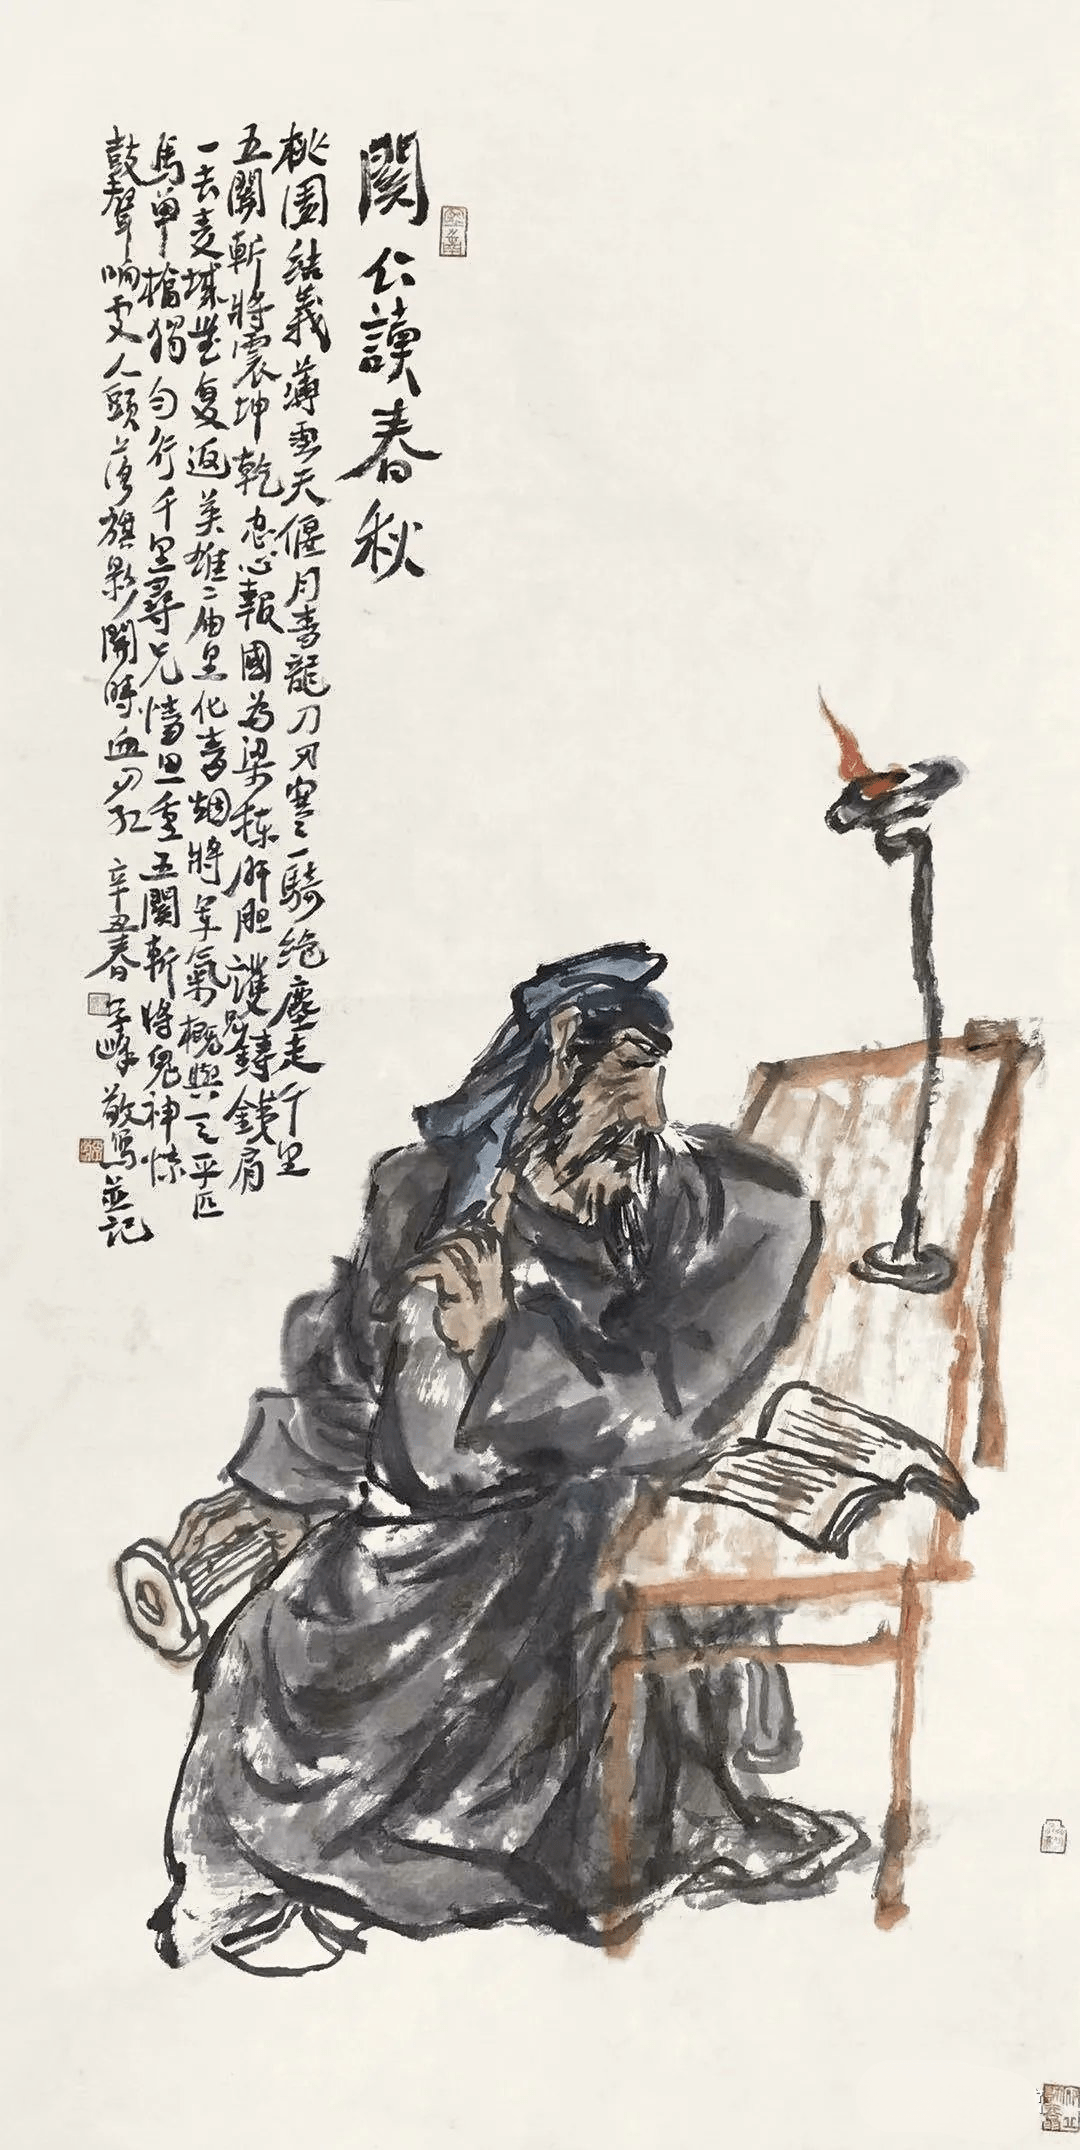 關公讀春秋
桃園結義薄雲天偃月青龍刀刃寒一騎絕塵走千里
五關斬將震坤乾忠心報國為梁棟肝胆護兄鑄鉄肩
一去麦城豈复返英雄二伯里化青烟將軍氣概與之平匹
馬單槍獨勾行千里尋兄情思重五關斬將鬼神
鼓聲响处人頭落旗影開時血刃红 辛丑春 峰敬寫並記